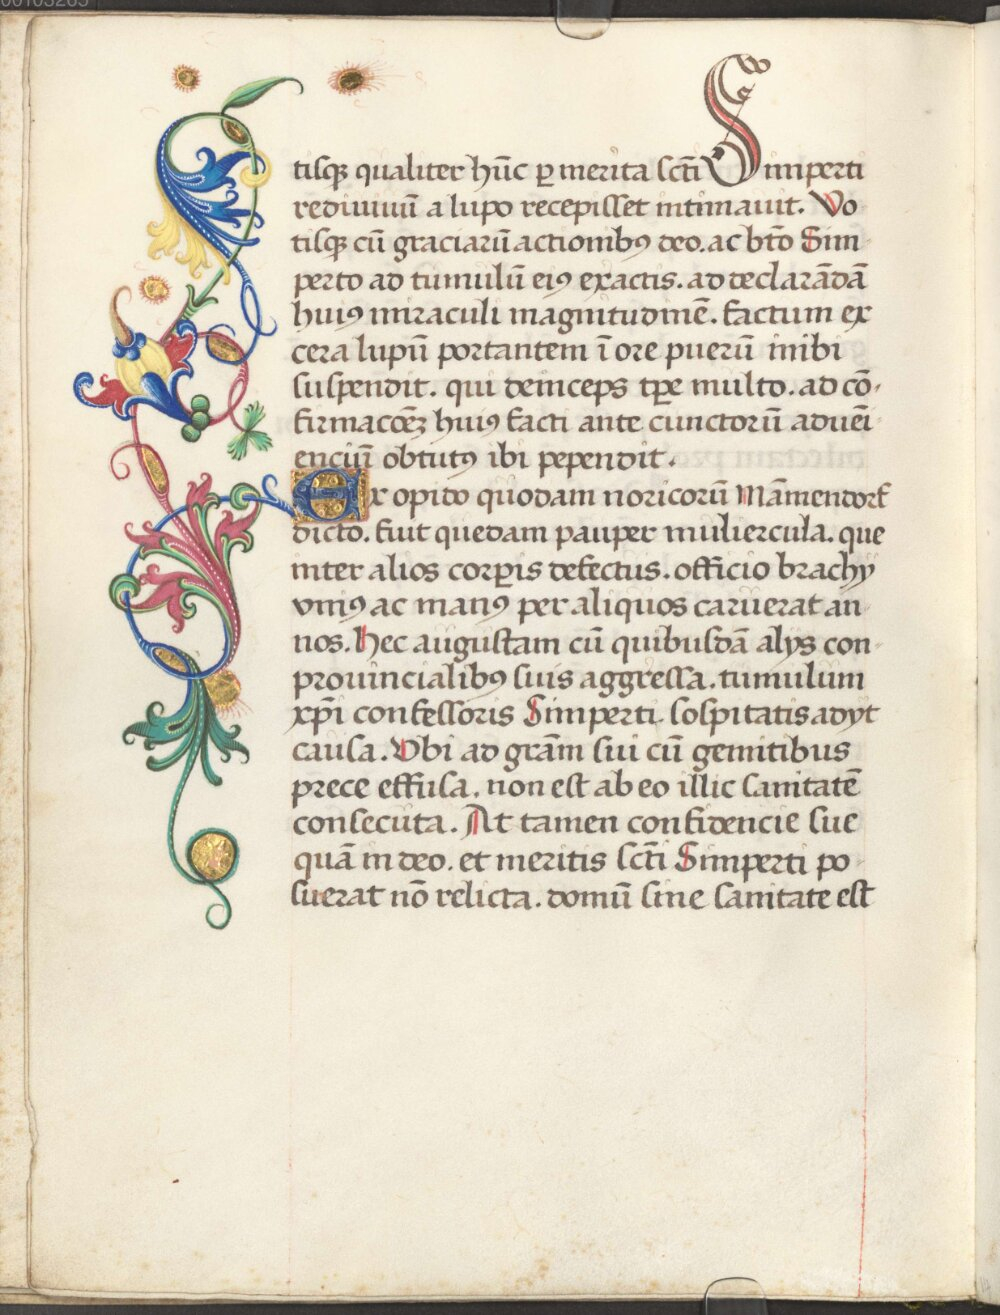 00103265
tisqꝫ qualiter hūc ꝑ merita scti Simperti
rediuiuū a lupo recepisset intimauit. Vo
tisqꝫ cū graciarū actionibꝰ deo. ac bto Sim-
perto ad tumulū eiꝰ exactis. ad declarādā
huiꝰ miraculi magnitudinē. factum ex
cera lupū portantem ī ore puerū inibi
suspendit. qui deinceps tꝑe multo. ad cō-
firmacōeꝫ huiꝰ facti ante cunctorū aduei
enciū obtutꝰ ibi pependit.
Ex opido quodam noricorū Māmendorf
dicto. fuit quedam pauper muliercula. que
inter alios corꝑis defectus. officio brachy
vniꝰ ac manꝰ per aliquos caruerat an-
nos. Hec augustam cū quibusdā alys con-
prouincialibꝰ suis aggressa. tumulum
xp̄i confessoris Simperti. sospitatis adyt
causa. Vbi ad grām sui cū gemitibus
prece effusa. non est ab eo illic sanitatē
consecuta. At tamen confidencie sue
quā in deo. et meritis scti Simperti po-
suerat nō relicta. domū sine sanitate est